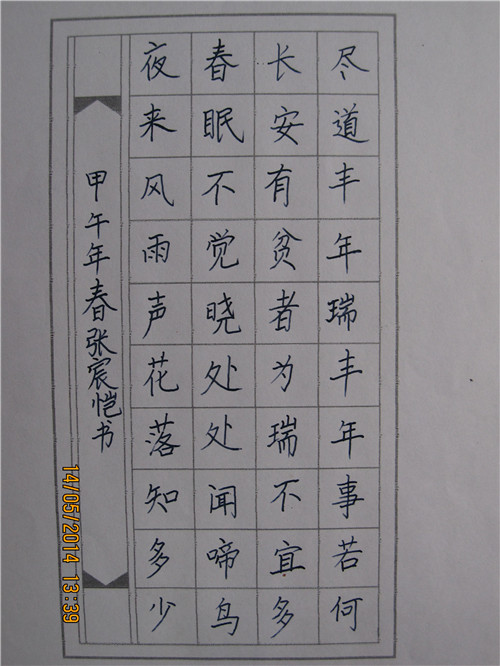 尽道丰年瑞丰年事若何
长安有贫者为瑞不宜多
春眠不觉晓处处闻啼鸟
夜来风雨声花落知多少
甲午年春张宸恺书
14/05/2014 13:39